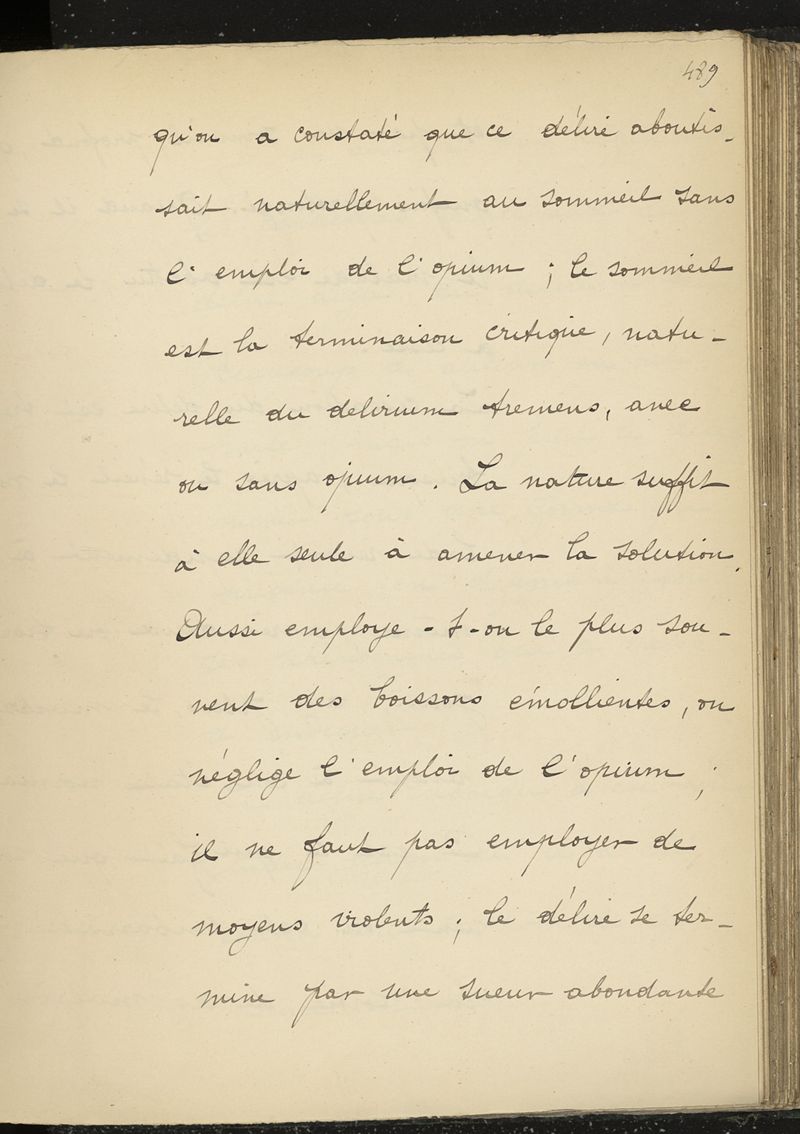 489
qu'on a constaté que ce délire aboutis-
sait naturellement au sommeil sans
l'emploi de l'opium ; le sommeil
est la terminaison critique, natu-
relle du delirium tremens, avec
ou sans opium. La nature suffit
à elle seule à amener la solution.
Aussi employe-t-on le plus sou-
vent des boissons émollientes, on
néglige l'emploi de l'opium ;
il ne faut pas employer de
moyens violents ; le délire se ter-
mine par une sueur abondante